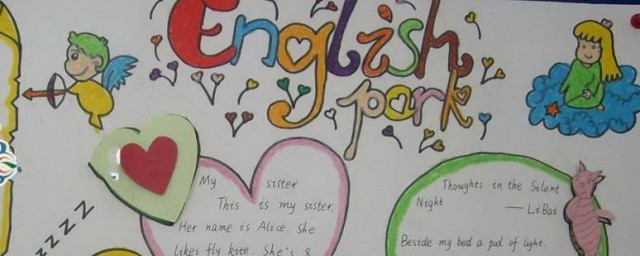 English
park
My sister
This is my sister.
Her name is Alice. She
likes fly kite. She's 8
Thoughts in the Silent
Night —— Li Bai
Beside my bed a pool of light.
ZZZZZ